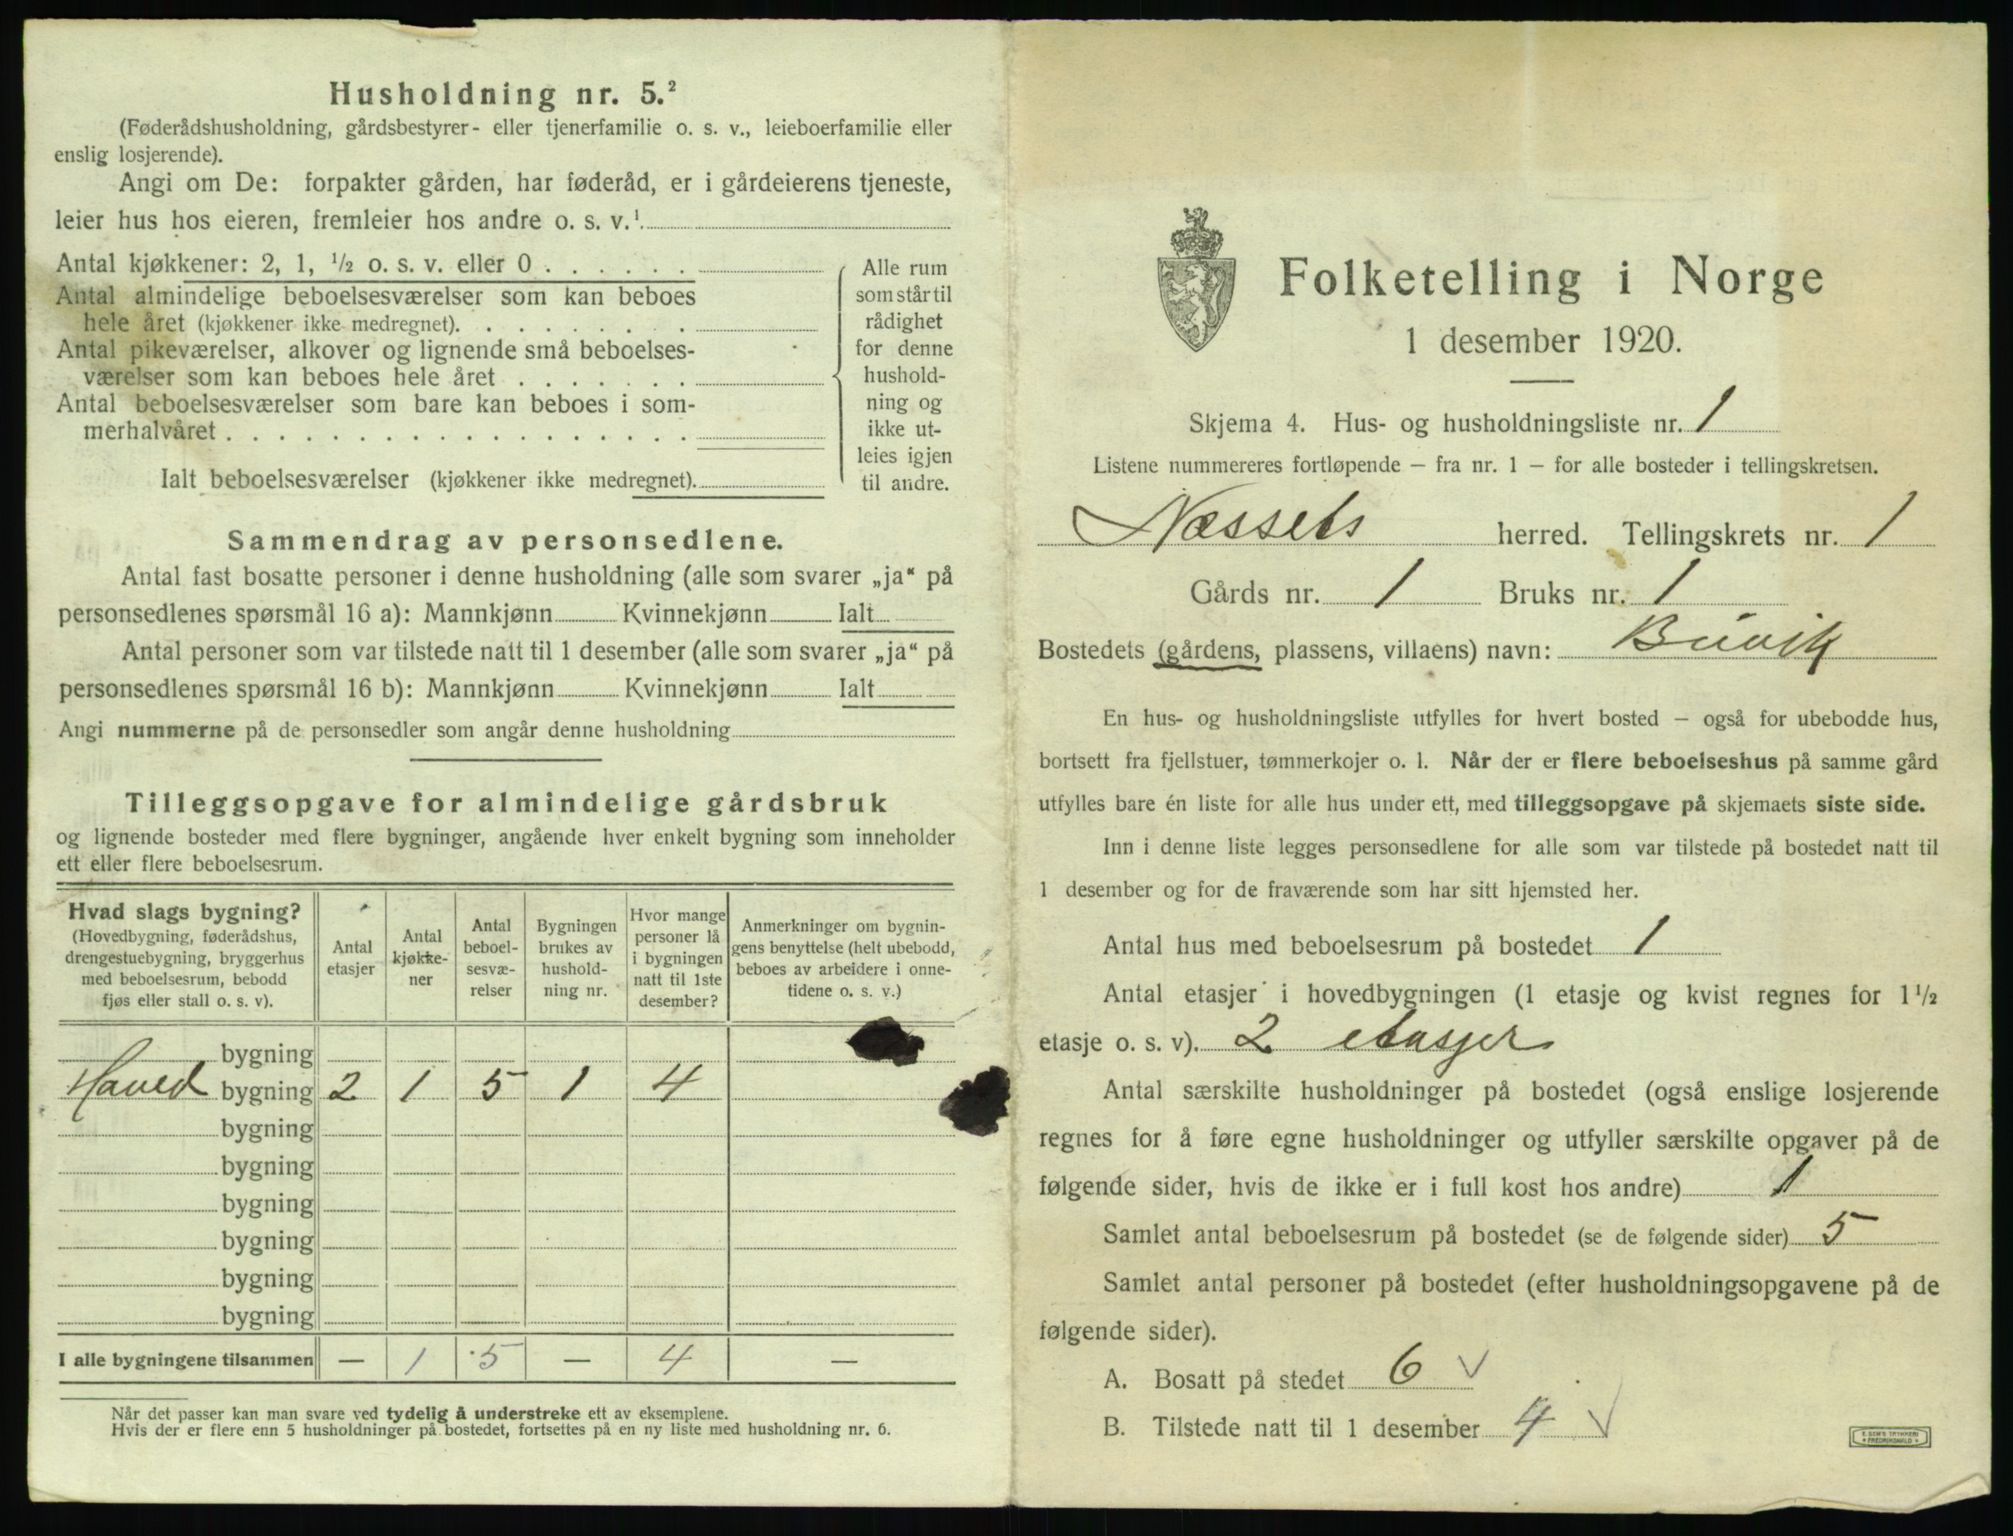 Husholdning nr. 5.²
(Føderådshusholdning, gårdsbestyrer- eller tjenerfamilie o. s. v., leieboerfamilie eller
enslig losjerende).
Angi om De: forpakter gården, har føderåd, er i gårdeierens tjeneste,
leier hus hos eieren, fremleier hos andre o. s. v.¹
Antal kjøkkener: 2, 1, ½ o. s. v. eller 0
Antal almindelige beboelsesværelser som kan beboes
hele året (kjøkkener ikke medregnet).
Antal pikeværelser, alkover og lignende små beboelses-
værelser som kan beboes hele året
Antal beboelsesværelser som bare kan beboes i som-
merhalvåret
Ialt beboelsesværelser (kjøkkener ikke medregnet).
Alle rum
som står til
rådighet
for denne
hushold-
ning og
ikke ut-
leies igjen
til andre.
Sammendrag av personsedlene.
Antal fast bosatte personer i denne husholdning (alle som svarer „ja“ på
personsedlenes spørsmål 16 a): Mannkjønn Kvinnekjønn Ialt
Antal personer som var tilstede natt til 1 desember (alle som svarer „ja“ på
personsedlenes spørsmål 16 b): Mannkjønn Kvinnekjønn Ialt
Angi nummerne på de personsedler som angår denne husholdning
Tilleggsopgave for almindelige gårdsbruk
og lignende bosteder med flere bygninger, angående hver enkelt bygning som inneholder
ett eller flere beboelsesrum.
Hvad slags bygning?
(Hovedbygning, føderådshus,
drengestuebygning, bryggerhus
med beboelsesrum, bebodd
fjøs eller stall o. s. v).
Antal
etasjer
Antal
kjøkke-
ner
Antal
beboel-
sesvæ-
relser
Bygningen
brukes av
hushold-
ning nr.
Hvor mange
personer lå
i bygningen
natt til 1ste
desember?
Anmerkninger om bygnin-
gens benyttelse (helt ubebodd,
beboes av arbeidere i onne-
tidene o. s. v.)
bygning
Haved bygning 2 1 5 1 4
bygning
bygning
bygning
bygning
bygning
bygning
I alle bygningene tilsammen — 1 5 — 4 —
Når det passer kan man svare ved tydelig å understreke ett av eksemplene.
Hvis der er flere enn 5 husholdninger på bostedet, fortsettes på en ny liste med husholdning nr. 6.
Folketelling i Norge
1 desember 1920.
Skjema 4. Hus- og husholdningsliste nr. 1
Listene nummereres fortløpende – fra nr. 1 – for alle bosteder i tellingskretsen.
Næssets herred. Tellingskrets nr. 1
Gårds nr. 1 Bruks nr. 1
Bostedets (gårdens, plassens, villaens) navn: Buvik
En hus- og husholdningsliste utfylles for hvert bosted – også for ubebodde hus,
bortsett fra fjellstuer, tømmerkojer o. l. Når der er flere beboelseshus på samme gård
utfylles bare én liste for alle hus under ett, med tilleggsopgave på skjemaets siste side.
Inn i denne liste legges personsedlene for alle som var tilstede på bostedet natt til
1 desember og for de fraværende som har sitt hjemsted her.
Antal hus med beboelsesrum på bostedet 1
Antal etasjer i hovedbygningen (1 etasje og kvist regnes for 1½
etasje o. s. v). 2 etasjer
Antal særskilte husholdninger på bostedet (også enslige losjerende
regnes for å føre egne husholdninger og utfyller særskilte opgaver på de
følgende sider, hvis de ikke er i full kost hos andre) 1
Samlet antal beboelsesrum på bostedet (se de følgende sider) 5
Samlet antal personer på bostedet (efter husholdningsopgavene på de
følgende sider).
A. Bosatt på stedet 6 ✓
B. Tilstede natt til 1 desember 4 ✓